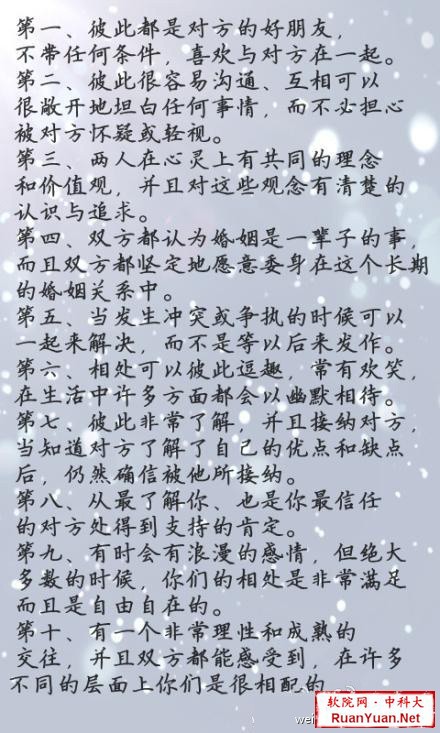 第一、彼此都是对方的好朋友，
不带任何条件，喜欢与对方在一起。
第二、彼此很容易沟通、互相可以
很敞开地坦白任何事情，而不必担心
被对方怀疑或轻视。
第三、两人在心灵上有共同的理念
和价值观，并且对这些观念有清楚的
认识与追求。
第四、双方都认为婚姻是一辈子的事，
而且双方都坚定地愿意委身在这个长期
的婚姻关系中。
第五、当发生冲突或争执的时候可以
一起来解决，而不是等以后来发作。
第六、相处可以彼此逗趣，常有欢笑，
在生活中许多方面都会以幽默相待。
第七、彼此非常了解，并且接纳对方，
当知道对方了解了自己的优点和缺点
后，仍然确信被他所接纳。
第八、从最了解你、也是你最信任
的对方处得到支持的肯定。
第九、有时会有浪漫的感情，但绝大
多数的时候，你们的相处是非常满足
而且是自由自在的。
第十、有一个非常理性和成熟的
交往，并且双方都能感受到，在许多
不同的层面上你们是很相配的
软院网·中科大
RuanYuan.Net